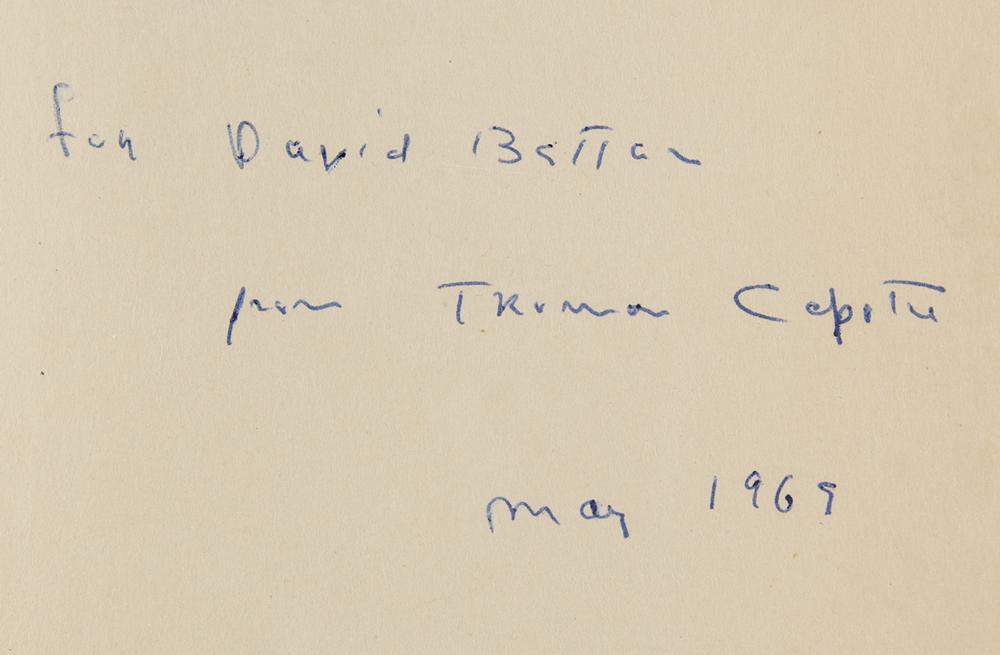 for David Battan
from Truman Capote
May 1969